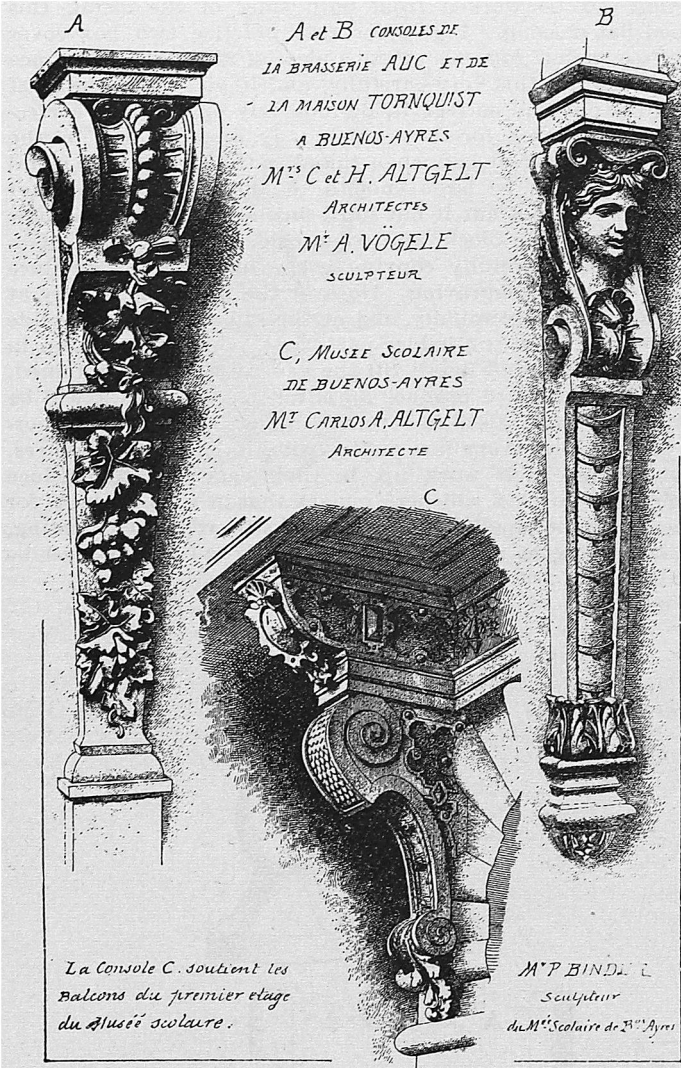 A
B
A et B CONSOLES DE
LA BRASSERIE AUC ET DE
LA MAISON TORNQUIST
A BUENOS-AYRES
Mrs C et H. ALTGELT
ARCHITECTES
Mr A. VÖGELE
SCULPTEUR
C, MUSEE SCOLAIRE
DE BUENOS-AYRES
Mr CARLOS A. ALTGELT
ARCHITECTE
C.
La Console C. soutient les
Balcons du premier etage
du Muséé scolaire.
Mr P
Sculpteur
du Mée Scolaire de Bos Ayres